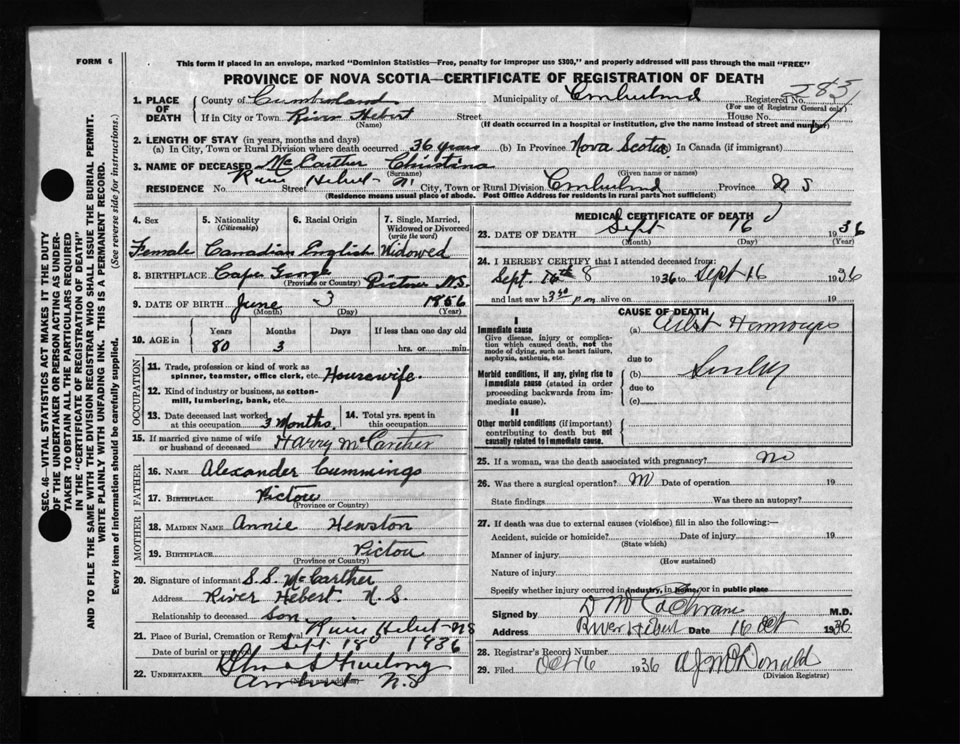 FORM 6
This form if placed in an envelope, marked "Dominion Statistics—Free, penalty for improper use $300," and properly addressed will pass through the mail "FREE"
PROVINCE OF NOVA SCOTIA—CERTIFICATE OF REGISTRATION OF DEATH
SEC. 46—VITAL STATISTICS ACT MAKES IT THE DUTY
OF THE UNDERTAKER OR PERSON ACTING AS UNDER-
TAKER TO OBTAIN ALL THE PARTICULARS REQUIRED
IN THE "CERTIFICATE OF REGISTRATION OF DEATH"
AND TO FILE THE SAME WITH THE DIVISION REGISTRAR WHO SHALL ISSUE THE BURIAL PERMIT.
WRITE PLAINLY WITH UNFADING INK. THIS IS A PERMANENT RECORD.
Every item of information should be carefully supplied. (See reverse side for instructions.)
1. PLACE OF DEATH
County of Cumberland Municipality of Registered No. 285
(For use of Registrar General only)
If in City or Town River Hebert Street House No.
(Name) (If death occurred in a hospital or institution, give the name instead of street and number)
2. LENGTH OF STAY (in years, months and days)
(a) In City, Town or Rural Division where death occurred 36 years (b) In Province Nova Scotia In Canada (if immigrant)
3. NAME OF DECEASED McCarther Christina
(Surname) (Given name or names)
RESIDENCE No. River Hebert Street City, Town or Rural Division Province N S.
(Residence means usual place of abode. Post Office Address for residents in rural parts not sufficient)
4. Sex 5. Nationality (Citizenship) 6. Racial Origin 7. Single, Married, Widowed or Divorced (write the word)
Female Canadian English Widowed
8. BIRTHPLACE Cape George Pictou N.S.
(Province or Country)
9. DATE OF BIRTH June 3 1856
(Month) (Day) (Year)
10. AGE in Years Months Days If less than one day old
80 3 hrs. or min.
OCCUPATION
11. Trade, profession or kind of work as spinner, teamster, office clerk, etc. Housewife.
12. Kind of industry or business, as cotton-mill, lumbering, bank, etc.
13. Date deceased last worked at this occupation 3 Months. 14. Total yrs. spent in this occupation
15. If married give name of wife or husband of deceased Harry McCarther
FATHER
16. NAME Alexander Cummings
17. BIRTHPLACE Pictou
(Province or Country)
MOTHER
18. MAIDEN NAME Annie Hewston
19. BIRTHPLACE Pictou
(Province or Country)
20. Signature of informant S.S. McCarther
Address River Hebert. N.S.
Relationship to deceased Son
21. Place of Burial, Cremation or Removal River Hebert NS
Date of burial or removal Sept 18 1936
22. UNDERTAKER
(Name and address) Amherst N.S
MEDICAL CERTIFICATE OF DEATH
23. DATE OF DEATH Sept 16 1936
(Month) (Day) (Year)
24. I HEREBY CERTIFY that I attended deceased from:
Sept. 16th 8 1936 to Sept 16 1936
and last saw h alive on 19
CAUSE OF DEATH
I
Immediate cause
Give disease, injury or complication which caused death, not the mode of dying, such as heart failure, asphyxia, asthenia, etc.
(a)
due to
Morbid conditions, if any, giving rise to immediate cause (stated in order proceeding backwards from immediate cause).
(b) Senility
due to
(c)
II
Other morbid conditions (if important) contributing to death but not causally related to immediate cause.
25. If a woman, was the death associated with pregnancy? no
26. Was there a surgical operation? no Date of operation 19
State findings Was there an autopsy?
27. If death was due to external causes (violence) fill in also the following:—
Accident, suicide or homicide? Date of injury 19
(State which)
Manner of injury
(How sustained)
Nature of injury
Specify whether injury occurred in industry, in home, or in public place
Signed by D M Cochrane M.D.
Address River Hebert Date 16 Oct 1936
28. Registrar's Record Number
29. Filed Oct 16 1936 A J McDonald
(Division Registrar)